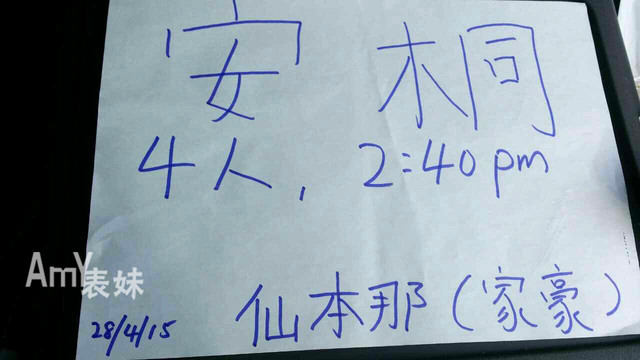 安 桐
4人, 2:40pm
Amy表妹
28/4/15 仙本那(家豪)